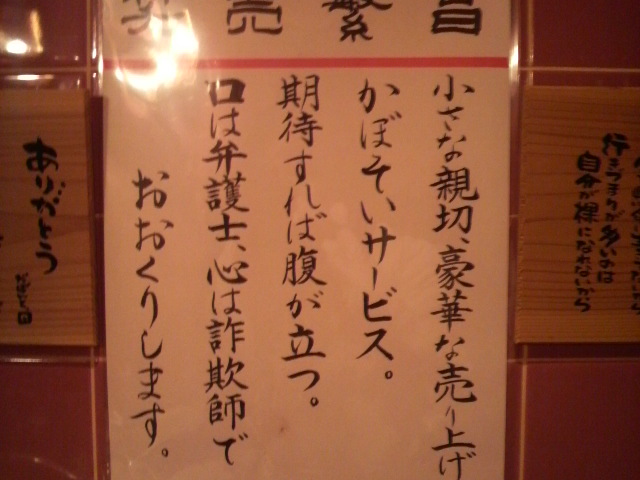 商売繁昌
小さな親切、豪華な売り上げ
かぼそいサービス。
期待すれば腹が立つ。
口は弁護士、心は詐欺師で
おおくりします。
行きづまりが多いのは
自分が裸になれないから
ありがとう